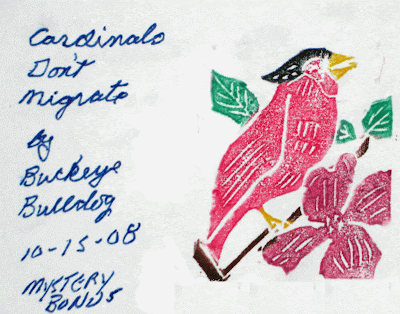 Cardinals
Don't
migrate
by
Buckeye
Bulldog
10-15-08
MYSTERY
BONUS